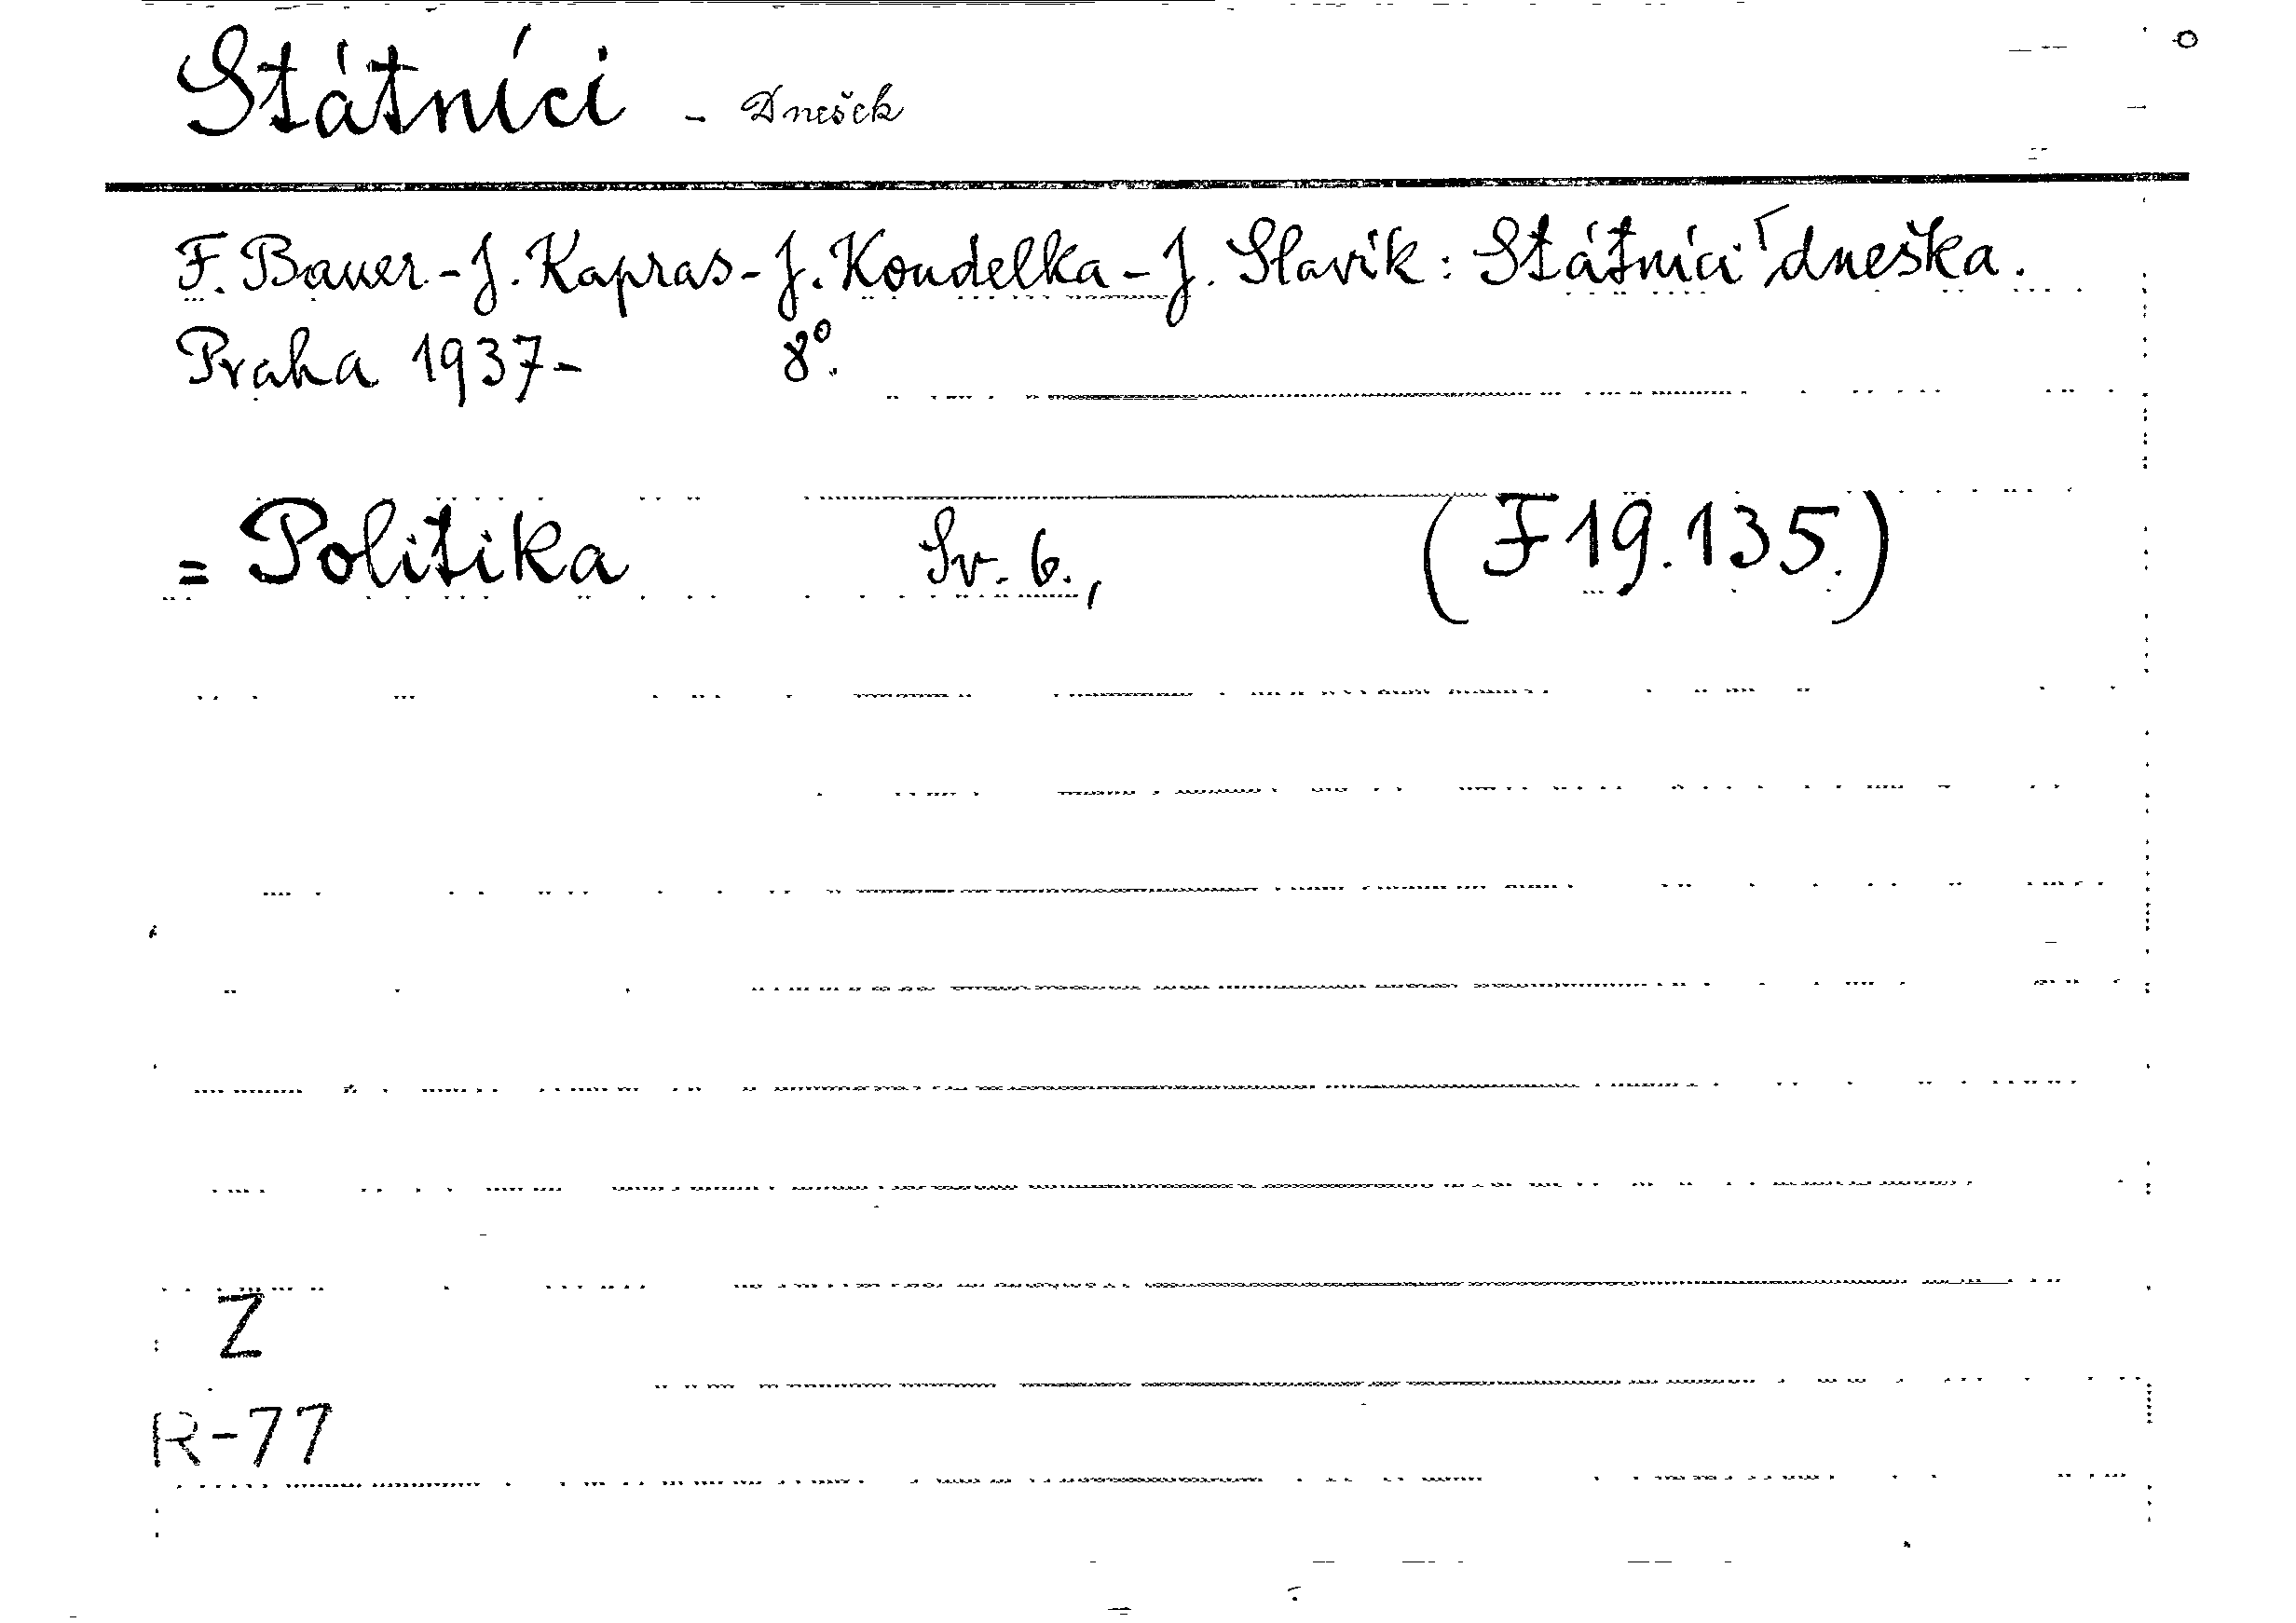 Státníci - Dnešek
F. Bauer - J. Kapras - J. Koudelka - J. Slavík: Státníci dneška.
Praha 1937- 8°.
= Politika Sv. 6., (F 19.135.)
Z
R-77